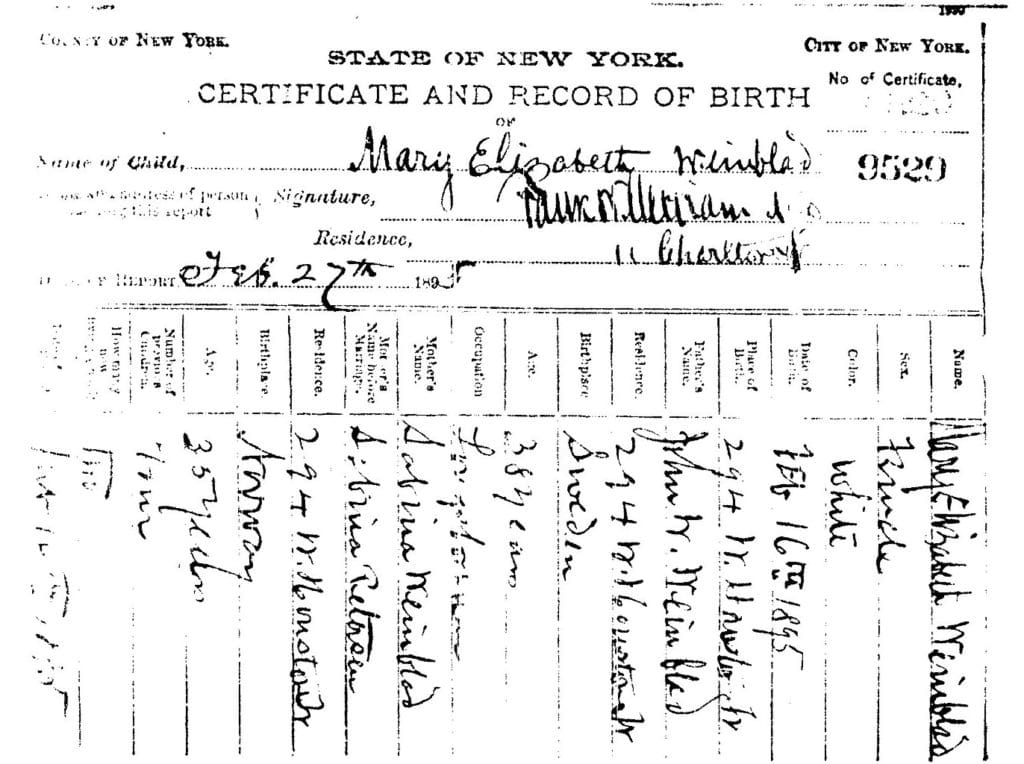 1890
COUNTY OF NEW YORK.
CITY OF NEW YORK.
STATE OF NEW YORK.
No of Certificate,
CERTIFICATE AND RECORD OF BIRTH
OF
Name of Child, Mary Elizabeth Weinblad
9529
address of person
this report
Signature,
Residence, 11 Charlton
REPORT Feb. 27th 1895
Name. Mary Elizabeth Weinblad
Sex. Female
Color. White
Date of Birth. Feb 16th 1895
Place of Birth. 294 W.
Father's Name. John W. Weinblad
Residence. 294 W. Houston
Birthplace Sweden
Age. 38 years
Occupation
Mother's Name. Sabina Weinblad
Mother's Name before Marriage. Petersen
Residence. 294 W. Houston
Birthplace. Norway
Age. 35 years
Number of previous Children. Four
How many now